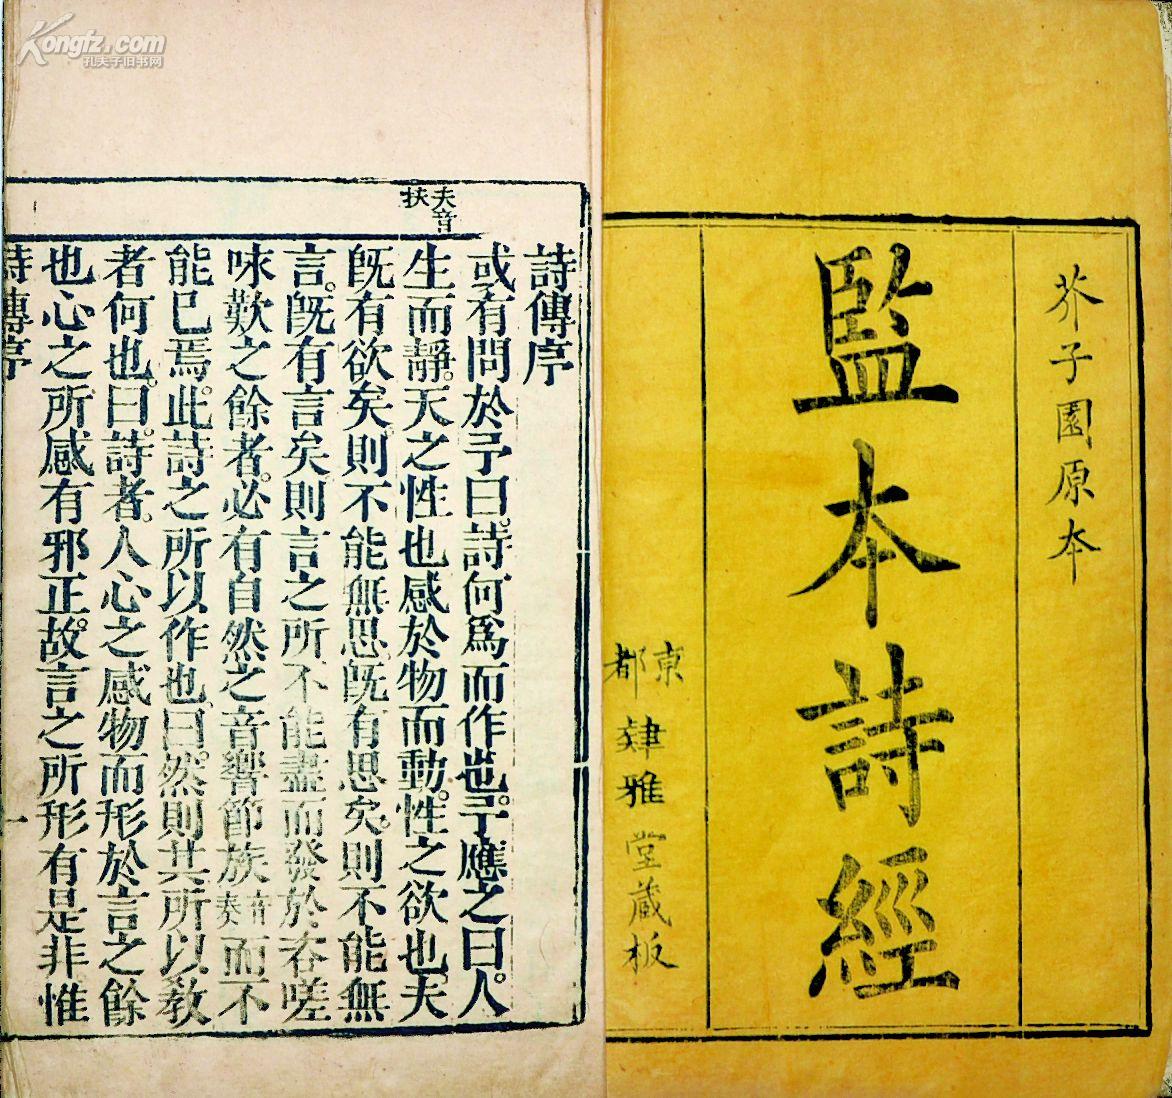 芥子園原本
監本詩經
京都肄雅堂藏板
夫音
扶
詩傳序
或有問於予曰。詩何爲而作也。予應之曰。人
生而靜。天之性也感於物而動。性之欲也。夫
旣有欲矣。則不能無思旣有思矣。則不能無
言。旣有言矣則言之所不能盡而發於咨嗟
咏歎之餘者。必有自然之音響節族音奏而不
能已焉。此詩之所以作也。曰。然則其所以敎
者何也。曰。詩者。人心之感物而形於言之餘
也心之所感有邪正。故言之所形有是非惟
詩傳序 一
Kongfz.com
孔夫子旧书网